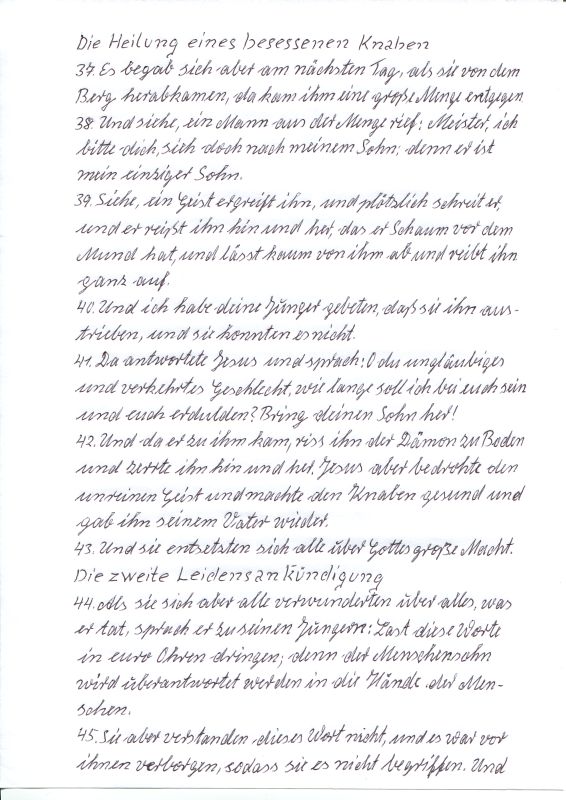 Die Heilung eines besessenen Knaben
37. Es begab sich aber am nächsten Tag, als sie von dem
Berg herabkamen, da kam ihm eine große Menge entgegen
38. Und siehe, ein Mann aus der Menge rief: Meister, ich
bitte dich, sieh doch nach meinem Sohn; denn er ist
mein einziger Sohn.
39. Siehe, ein Geist ergreift ihn, und plötzlich schreit er,
und er reißt ihn hin und her, das er Schaum vor dem
Mund hat, und lässt kaum von ihm ab und reibt ihn
ganz auf.
40. Und ich habe deine Jünger gebeten, daß sie ihn aus-
trieben, und sie konnten es nicht.
41. Da antwortete Jesus und sprach: O du ungläubiges
und verkehrtes Geschlecht, wie lange soll ich bei euch sein
und euch erdulden? Bring deinen Sohn her!
42. Und da er zu ihm kam, riss ihn der Dämon zu Boden
und zerrte ihn hin und her. Jesus aber bedrohte den
unreinen Geist und machte den Knaben gesund und
gab ihn seinem Vater wieder.
43. Und sie entsetzten sich alle über Gottes große Macht.
Die zweite Leidensankündigung
44. Als sie sich aber alle verwunderten über alles, was
er tat, sprach er zu seinen Jüngern: Last diese Worte
in eure Ohren dringen; denn der Menschensohn
wird überantwortet werden in die Hände der Men-
schen.
45. Sie aber verstanden dieses Wort nicht, und es war vor
ihnen verborgen, sodass sie es nicht begriffen. Und